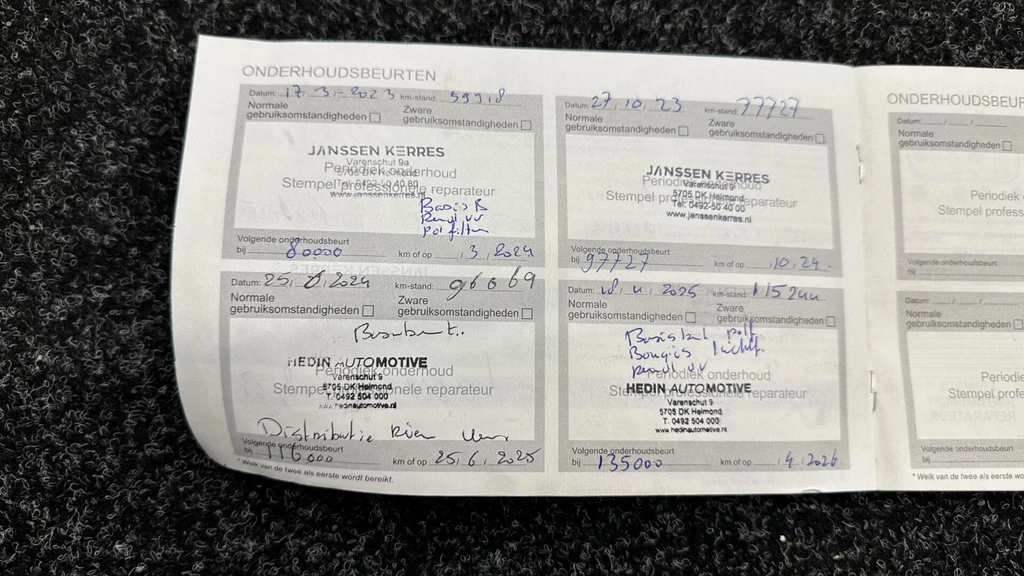 ONDERHOUDSBEURTEN
Datum: 17.3.2023 km-stand: 59918
Normale gebruiksomstandigheden
Zware gebruiksomstandigheden
JANSSEN KERRES
Varenschut 9a
5705 DK Helmond
Periodiek onderhoud
Stempel professionele reparateur
www.janssenkerres.nl
Basis B
pol filter
Volgende onderhoudsbeurt
bij 80000 km of op 3.2024
Datum: 27.10.23 km-stand: 77727
Normale gebruiksomstandigheden
Zware gebruiksomstandigheden
JANSSEN KERRES
Periodiek onderhoud
Varenschut 9
Stempel professionele reparateur
5705 DK Helmond
Tel: 0492-50 40 00
www.janssenkerres.nl
Volgende onderhoudsbeurt
bij 97727 km of op 10.24
Datum: 25.6.2024 km-stand: 96069
Normale gebruiksomstandigheden
Zware gebruiksomstandigheden
HEDIN AUTOMOTIVE
Periodiek onderhoud
Varenschut 9
Stempel professionele reparateur
5705 DK Helmond
T. 0492 504 000
www.hedinautomotive.nl
Distributie Riem
Volgende onderhoudsbeurt
bij 116000 km of op 25.6.2025
* Welk van de twee als eerste wordt bereikt.
Datum: 18.4.2025 km-stand: 115244
Normale gebruiksomstandigheden
Zware gebruiksomstandigheden
Bougies luchtf.
Periodiek onderhoud
Stempel professionele reparateur
HEDIN AUTOMOTIVE
Varenschut 9
5705 DK Helmond
T. 0492 504 000
www.hedinautomotive.nl
Volgende onderhoudsbeurt
bij 135000 km of op 4.2026
ONDERHOUDSBEUR
Datum:
Normale gebruiksomstandigheden
Periodiek
Stempel profess
Volgende onderhoudsbeurt
bij
Datum:
Normale gebruiksomstandigheden
Periodie
Stempel profes
Volgende onderhoudsbeurt
bij
* Welk van de twee als eerste wo